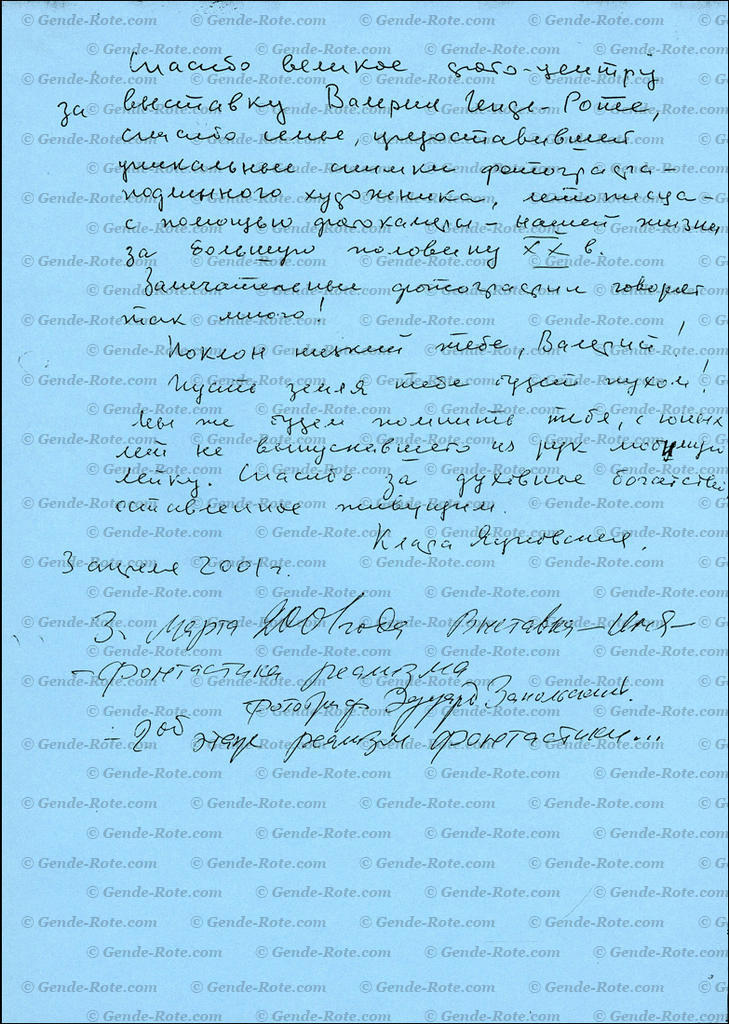 Спасибо великое фото-центру
за выставку Валерия Генде-Роте,
спасибо семье, предоставившей
уникальные снимки фотографа –
подлинного художника, летописца –
с помощью фотокамеры – нашей жизни
за большую половину XX в.
Замечательные фотографии говорят
так много!
Поклон низкий тебе, Валерий!
Пусть земля тебе будет пухом!
Мы же будем помнить тебя, с юных
лет не выпускавшего из рук
лейку. Спасибо за духовное богатство
оставленное живущим.
Клара
3 апреля 2001 г.
3. Марта 2001 года Выставка – Имя –
– фонтастика реализма
фотограф Эдуард
– реализм фонтастики...
© Gende-Rote.com